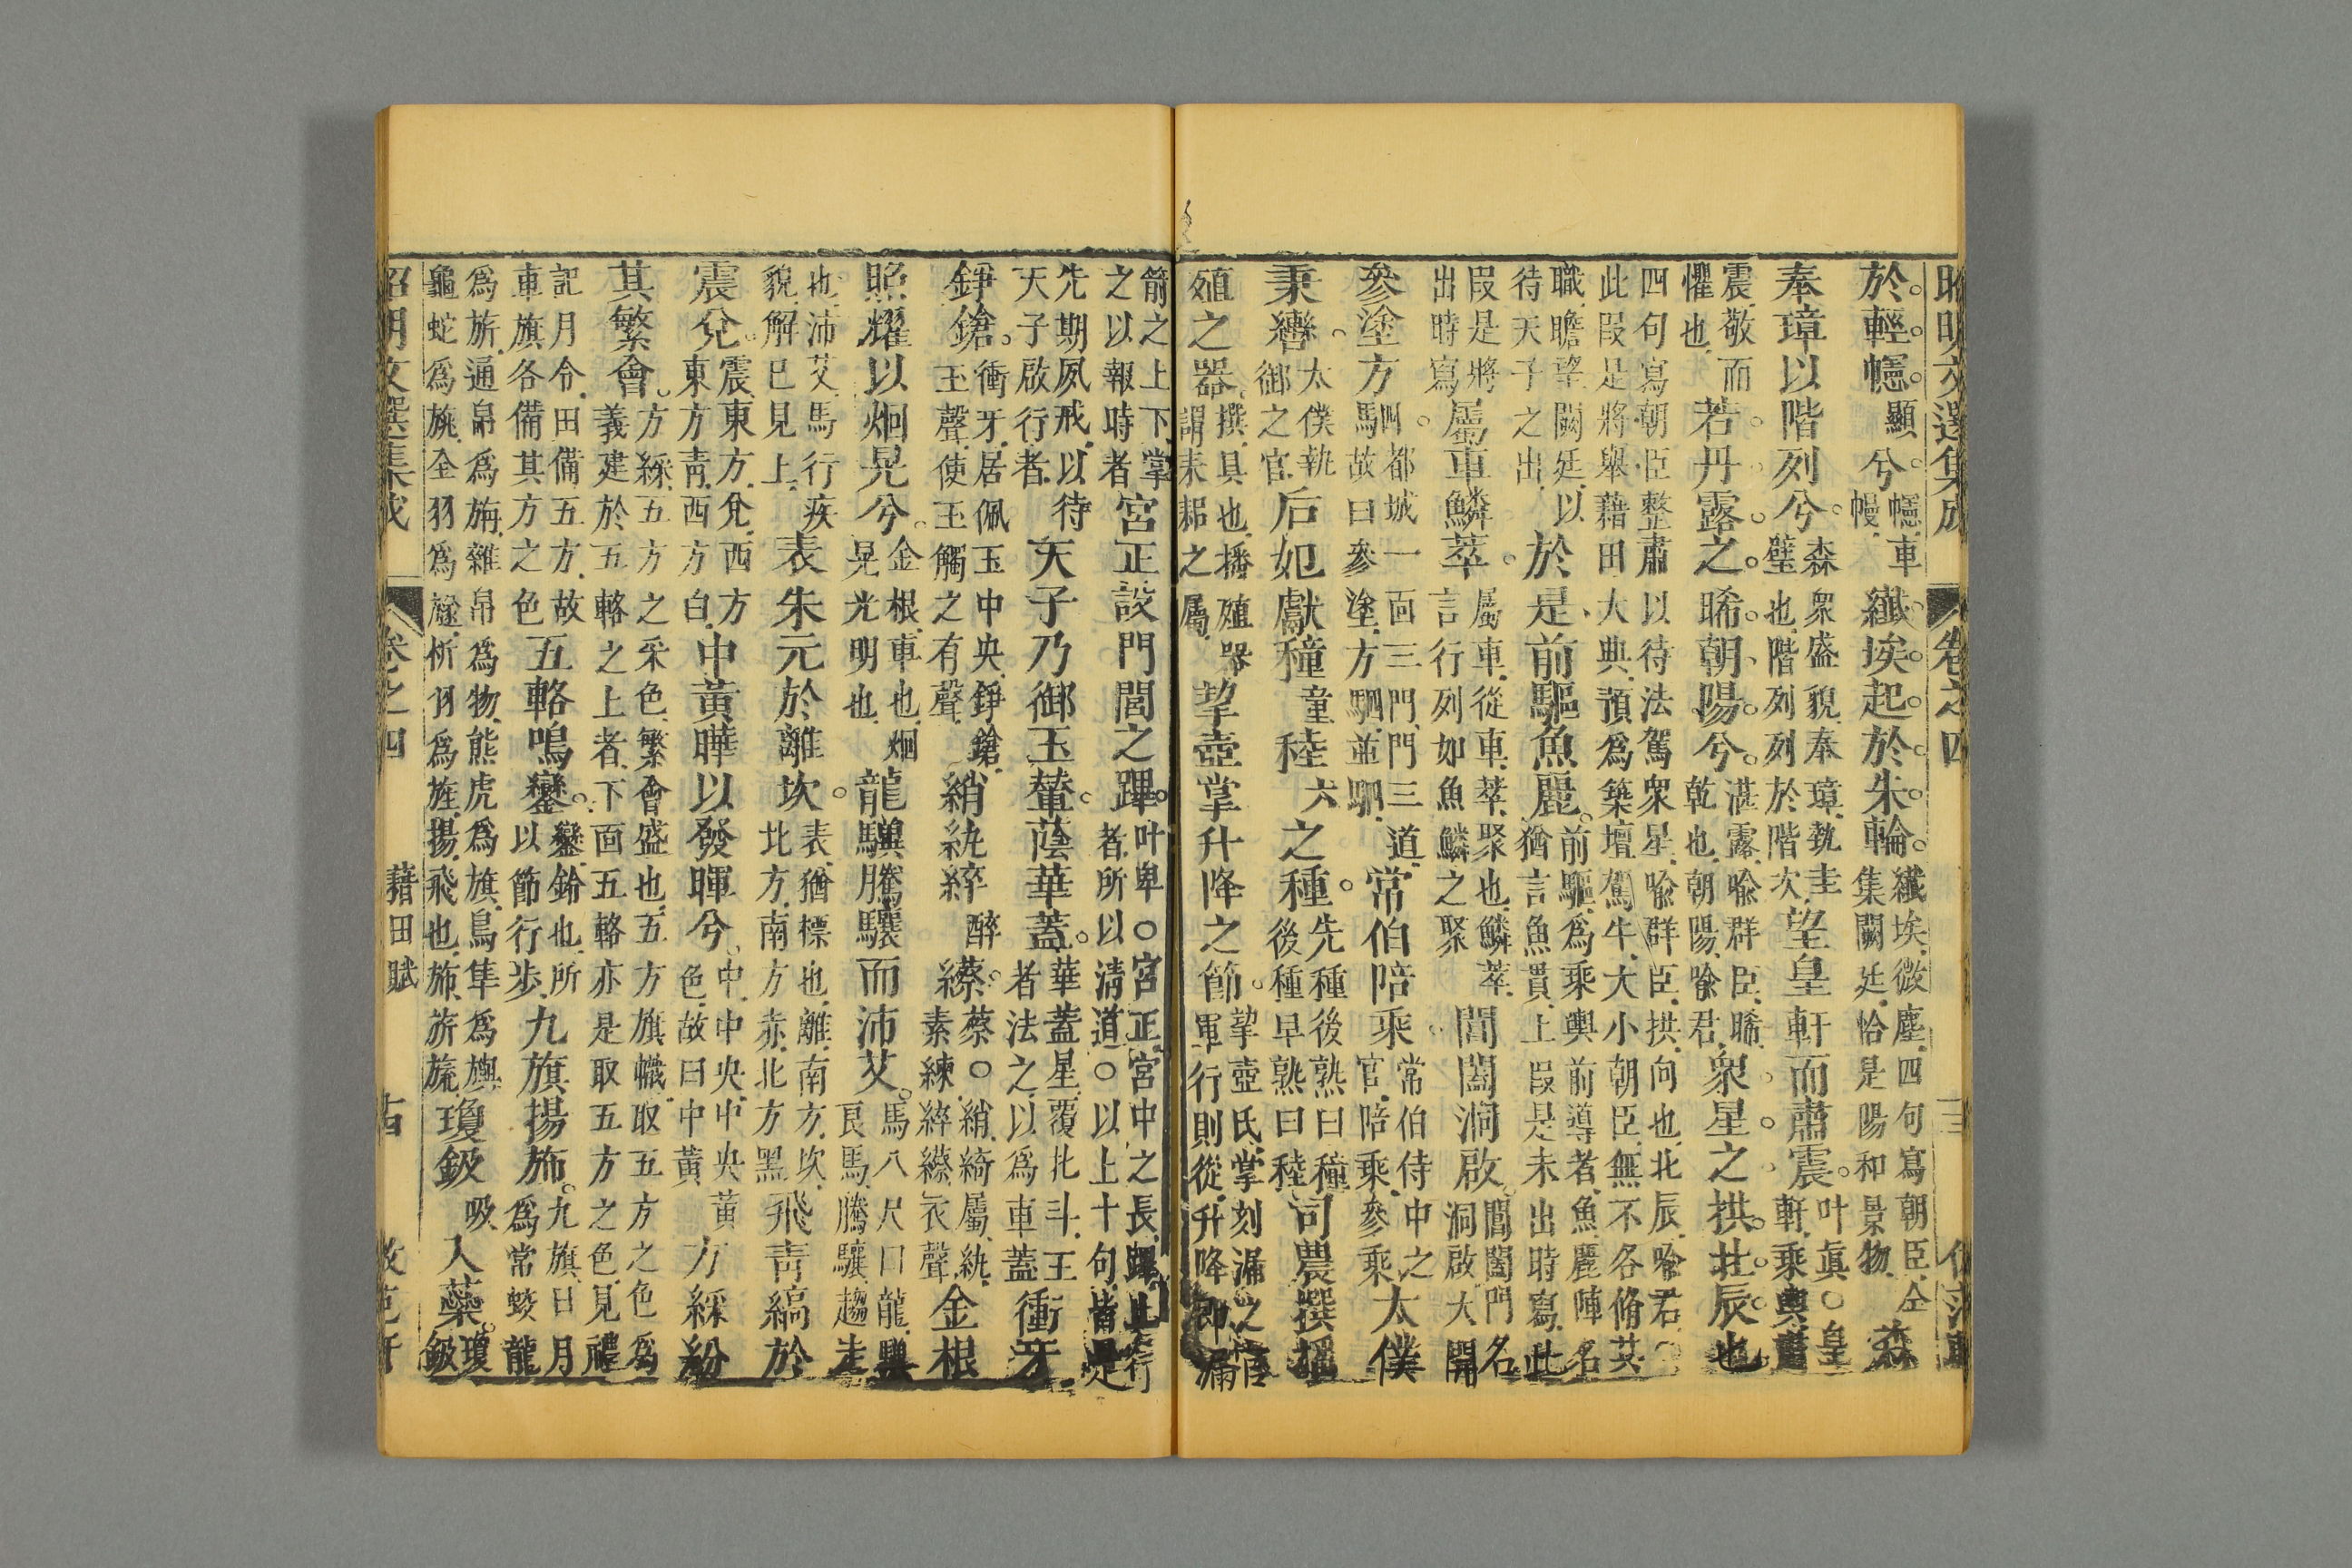 昭明文選集成 卷之四 三
於輕幰顯兮幰車幔纖埃起於朱輪纖埃微塵四句寫朝臣仝集闕廷恰是陽和景物森
奉璋以階列兮森衆盛貌奉璋執圭璧也階列列於階次望皇軒而肅震叶眞○皇軒乘輿肅
震敬而懼也若丹露之晞朝陽兮湛露喻群臣晞乾也朝陽喻君衆星之拱北辰也
四句寫朝臣整肅以待法駕衆星喻群臣拱向也北辰喻君○此段是將舉藉田大典預為築壇駕牛大小朝臣無不各脩其
職瞻望闕廷以待天子之出於是前驅魚麗前驅為乘輿前導者魚麗陣名猶言魚貫上段是未出時寫此
段是將出時寫屬車鱗萃屬車從車萃聚也鱗萃言行列如魚鱗之聚閶闔洞啟閶闔門名洞啟大開
參塗方駟都城一面三門門三道故曰參塗方駟並駟常伯陪乘常伯侍中之官陪乘參乘太僕
秉轡太僕執御之官后妃獻穜童稑六之種先種後熟曰穜後種早熟曰稑司農撰播
殖之器撰具也播殖器謂耒耜之屬挈壺掌升降之節挈壺氏掌刻漏之官軍行則從升降卽漏
箭之上下掌之以報時者宮正設門閭之蹕叶卑○宮正宮中之長蹕止行者所以清道○以上十句皆是
先期夙戒以待天子啟行者天子乃御玉輦蔭華蓋華蓋星覆北斗王者法之以為車蓋衝牙
錚鎗衝牙居佩玉中央錚鎗玉聲使玉觸之有聲綃紈綷醉䌨蔡○綃綺屬紈素練綷䌨衣聲金根
照耀以烱晃兮金根車也烱晃光明也龍驥騰驤而沛艾馬八尺曰龍驥良馬騰驤趨走
也沛艾馬行疾貌解已見上表朱元於離坎表猶標也離南方坎北方南方赤北方黑飛青縞於
震兌震東方兌西方東方青西方白中黃曄以發暉兮中中央中央黃色故曰中黃方綵紛
其繁會方綵五方之采色繁會盛也五方旗幟取五方之色為義建於五輅之上者下面五輅亦是取五方之色見禮
記月令田備五方故車旗各備其方之色五輅鳴鑾鑾鈴也所以節行步九旗揚旆九旗日月為常蛟龍
為旂通帛為旃雜帛為物熊虎為旗鳥隼為旟龜蛇為旐全羽為旞析羽為旌揚飛也旆旂旒瓊鈒吸入蘂瓊鈒
昭明文選集成 卷之四 藉田賦